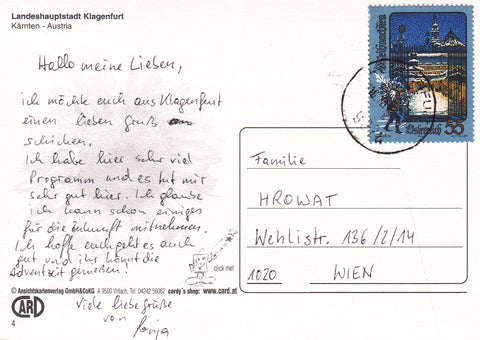 Landeshauptstadt Klagenfurt
Kärnten - Austria
Hallo meine Lieben,
ich möchte euch aus Klagenfurt
einen lieben Gruß
schicken.
Ich habe hier sehr viel
Programm und es tut mir
sehr gut hier. Ich glaube
ich kann schon einiges
für die Zukunft mitnehmen.
Ich hoffe euch geht es auch
gut und ihr könnt die
Adventzeit genießen!
Viele liebe Grüße
von Sonja
click me!
© Ansichtskartenverlag GmbH&CoKG A 9500 Villach, Tel. 04242 56062 cardy's shop: www.card.at
CARD
4
Weihnachten
Österreich 55
Familie
HROWAT
Wehlistr. 136/2/14
1020 WIEN